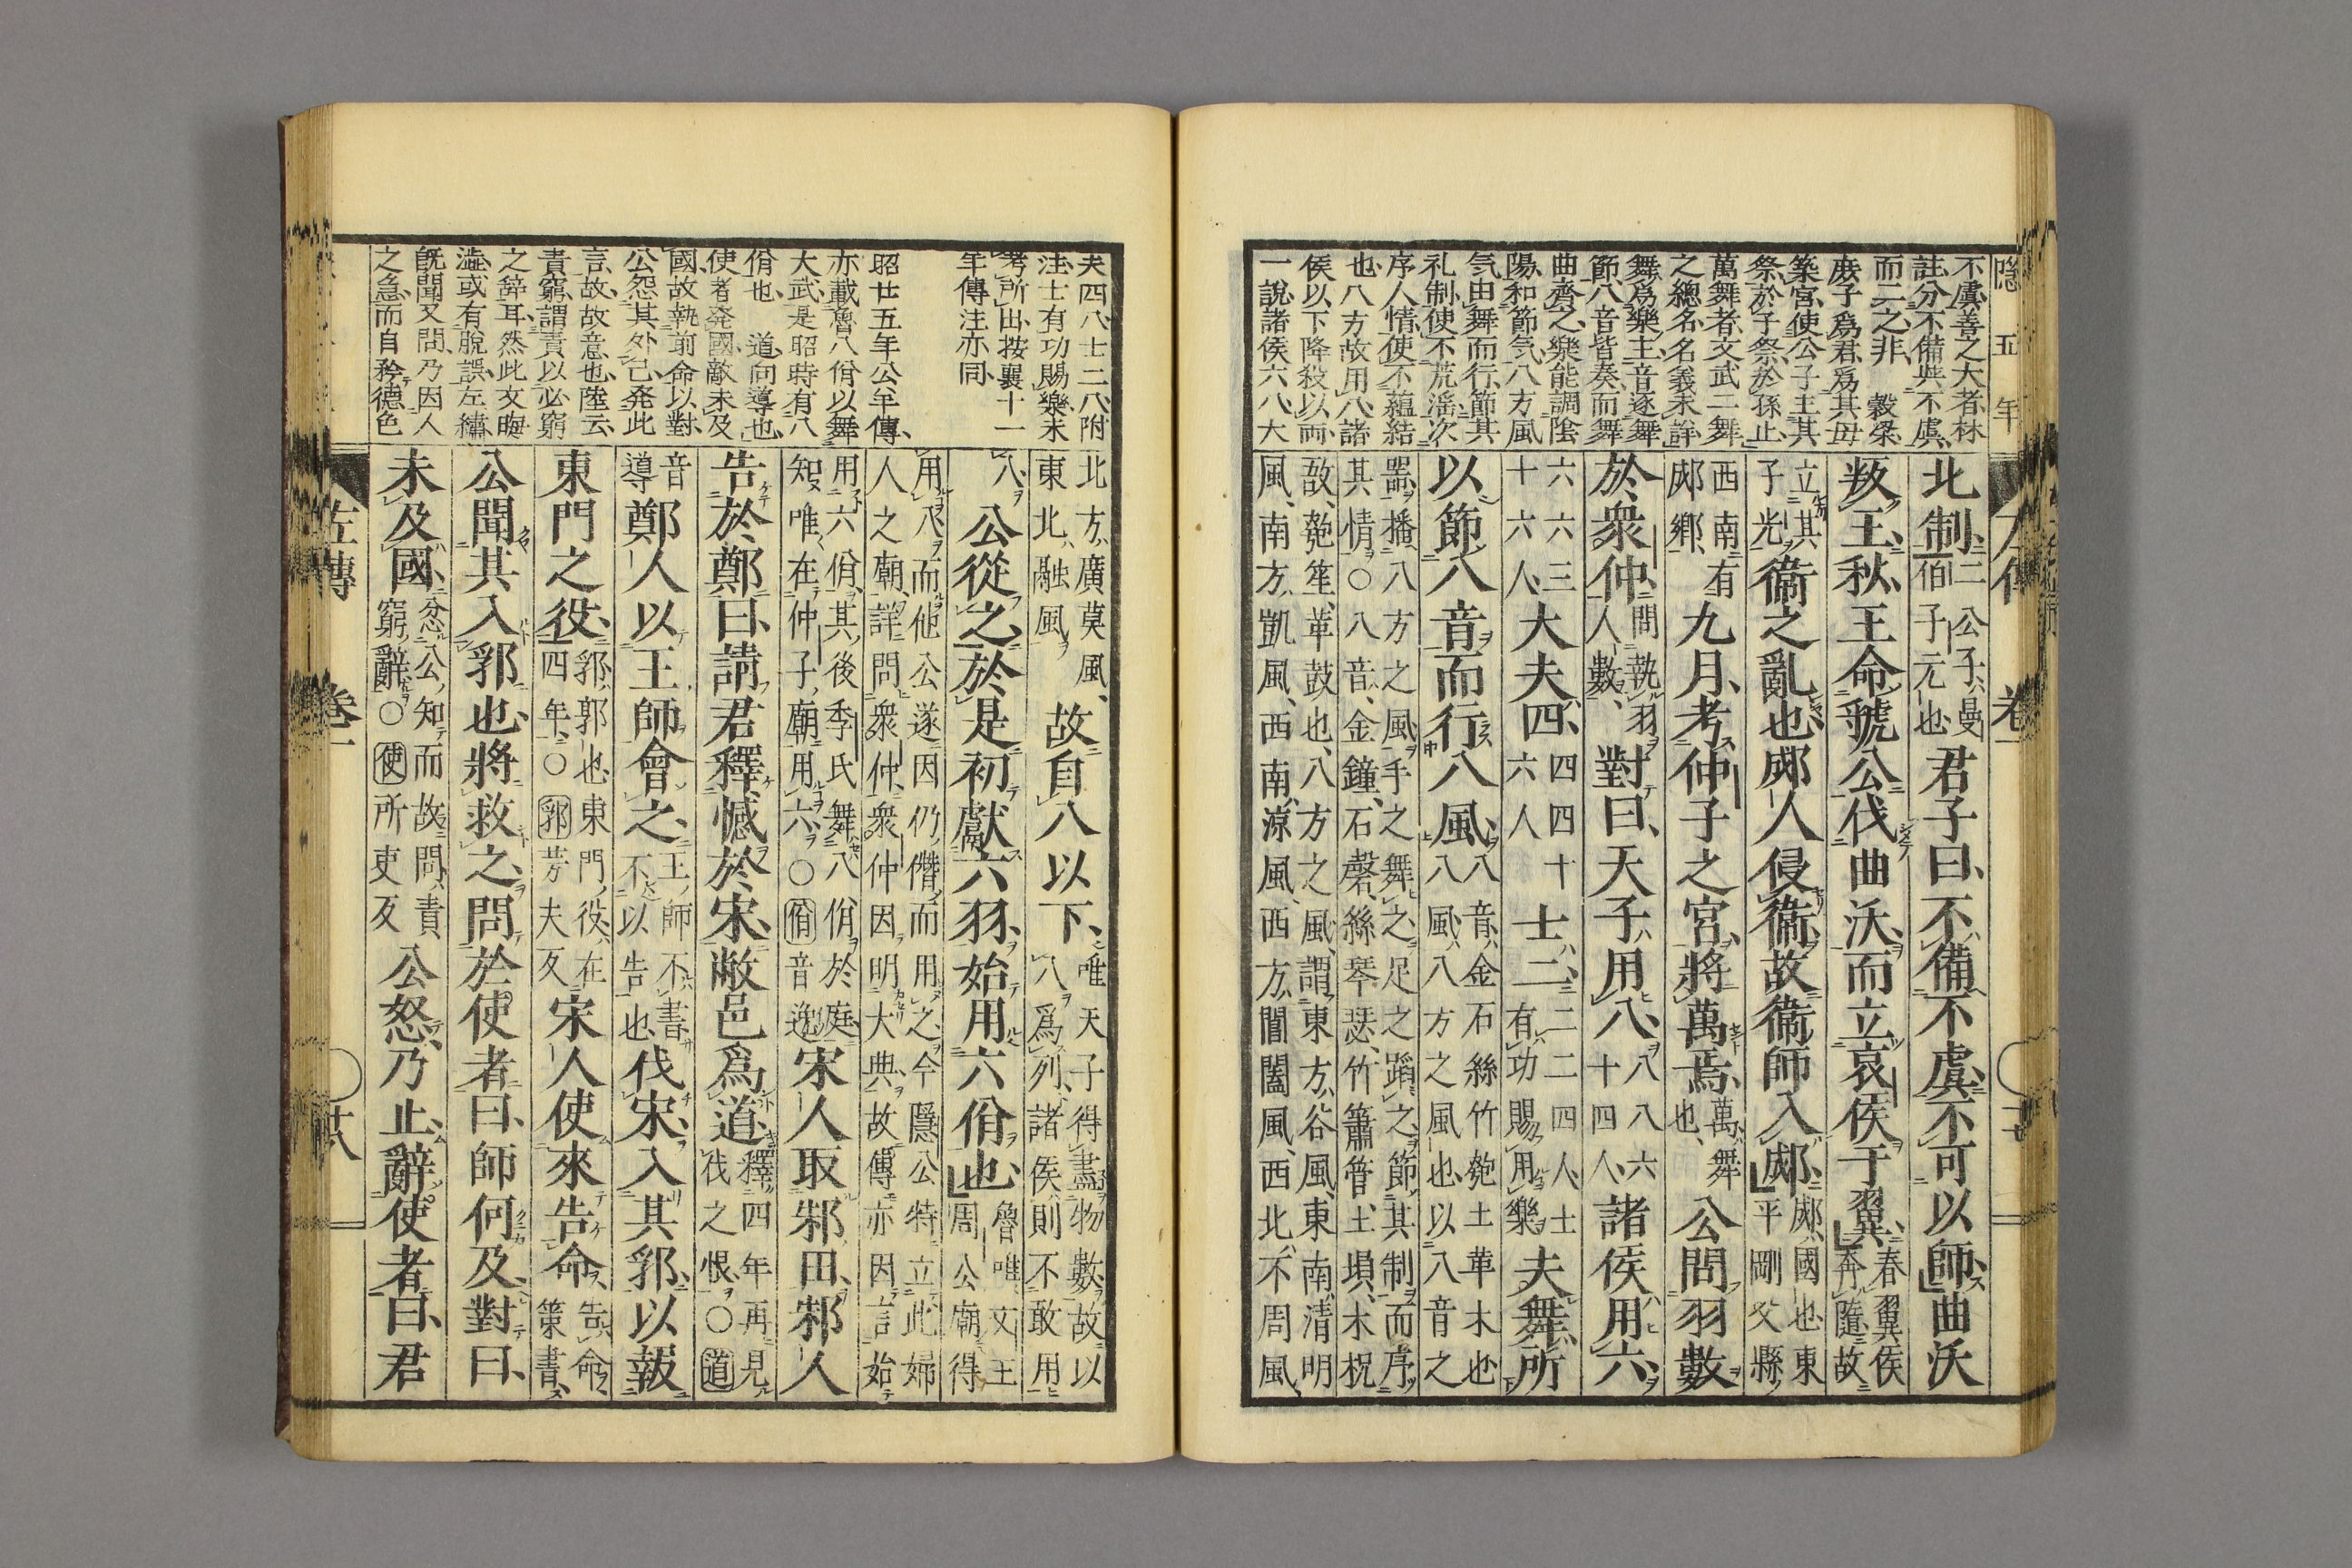 隱五年
不虞善之大者林
註分不備與不虞
而二之非 穀梁
庶子爲君爲其母
築宮使公子主其
祭於子祭於孫止
萬舞者文武二舞
之總名名義未詳
舞爲樂主音逐舞
節八音皆奏而舞
曲齊之樂能調陰
陽和節氣八方風
氣由舞而行節其
礼制使不荒淫次
序人情使不蘊結
也八方故用八諸
侯以下降殺以兩
一説諸侯六八大
北制二公子曼伯子元也君子曰不備不虞不可以師曲沃
叛王秋王命虢公伐曲沃而立哀侯于翼春翼侯奔隨故
立其子光衞之亂也郕人侵衞故衞師入郕郕國也東平剛父縣
西南有郕鄉九月考仲子之宮將萬焉萬舞也公問羽數
於衆仲問執羽人數對曰天子用八八八六十四人諸侯用六
六六三十六人大夫四四四十六人士二二二四人士有功賜用樂夫舞所
以節八音而行八風八音金石絲竹匏土革木也八風八方之風也以八音之
器播八方之風手之舞之足之蹈之節其制而序
其情○八音金鐘石磬絲琴瑟竹簫管土塤木柷
敔匏笙革鼓也八方之風謂東方谷風東南清明
風南方凱風西南涼風西方閶闔風西北不周風
夫四八士二八附
注士有功賜樂未
考所出按襄十一
年傳注亦同
昭廿五年公羊傳
亦載魯八佾以舞
大武是昭時有八
佾也 道向導也
使者発國敵未及
國故執前命以對
公怨其外己発此
言故故意也陸云
責窮謂責以必窮
之辞耳然此文晦
澁或有脱誤左繡
既聞又問乃因人
之急而自矜德色
北方廣莫風東北融風故自八以下唯天子得盡物數故以八爲列諸侯則不敢用
八公從之於是初獻六羽始用六佾也魯唯文王周公廟得
用八而他公遂因仍僭而用之今隱公特立此婦
人之廟詳問衆仲衆仲因明大典故傳亦因言始
用六佾其後季氏舞八佾於庭知唯在仲子廟用六○佾音逸宋人取邾田邾人
告於鄭曰請君釋憾於宋敝邑爲道釋四年再見伐之恨○道
音導鄭人以王師會之王師不書不以告也伐宋入其郛以報
東門之役郛郭也東門役在四年○郛芳夫反宋人使來告命告命策書
公聞其入郛也將救之問於使者曰師何及對曰
未及國忿公知而故問責窮辭○使所吏反公怒乃止辭使者曰君
左傳 卷一 十八